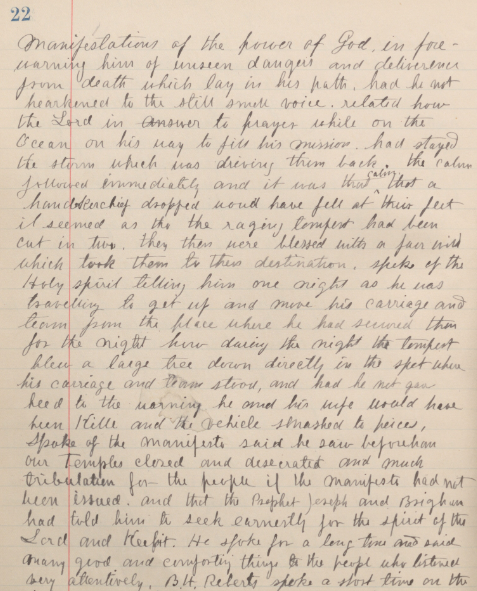 22
Manifestations of the power of God, in fore-
warning him of unseen dangers and deliverence
from death which lay in his path, had he not
hearkened to the still small voice. related how
the Lord in answer to prayer while on the
Ocean on his way to fill his mission. had stayed
the storm which was driving them back, the calm
followed immediately and it was thus calm that a
handkerchief dropped would have fell at their feet
it seemed as tho the raging tempest had been
cut in two. they then were blessed with a fair wind
which took them to their destination. spoke of the
Holy spirit telling him one night as he was
travelling to get up and move his carriage and
team from the place where he had secured them
for the night how during the night the tempest
blew a large tree down directly in the spot where
his carriage and team stood, and had he not gave
heed to the warning he and his wife would have
been Kille and the vehicle smashed to peices,
Spoke of the manifesto said he saw beforehan
our Temples closed and desecrated and much
tribulation for the people if the manifesto had not
been issued. and that the Prophet Joseph and Brigham
had told him to seek earnestly for the spirit of the
Lord and Keep it. He spoke for a long time and said
many good and comforting things to the people who listened
very attentively. B.H. Roberts spoke a short time on the